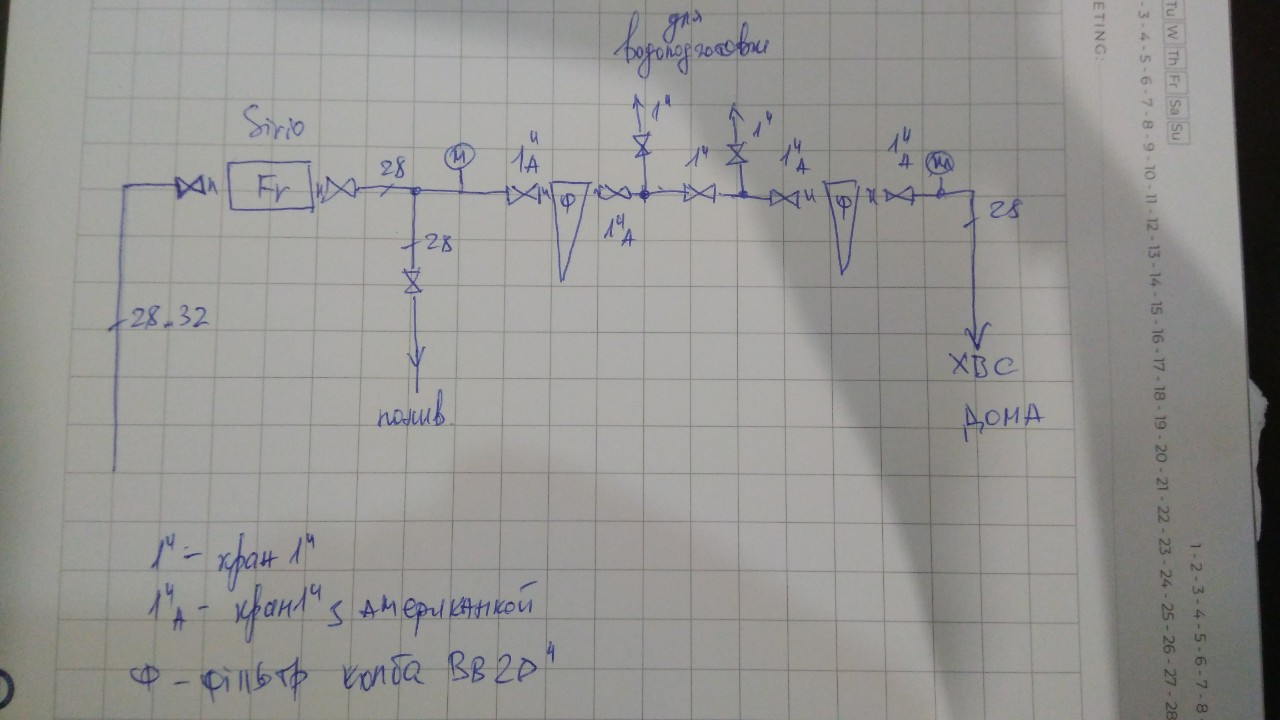 для
водоподготовки
Sirio
Fr
28
М
1"А
Ф
1"А
1"
1"
1"
1"А
Ф
1"А
М
28
28
28-32
полив.
ХВС
ДОМА
1" - кран 1"
1"А - кран 1" з американкой
Ф - фільтр колба ВВ20"
ETING:
Tu W Th Fr Sa Su
- 3 - 4 - 5 - 6 - 7 - 8 - 9 - 10 - 11 - 12 - 13 - 14 - 15 - 16 - 17 - 18 - 19 - 20 - 21 - 22 - 23 - 24 - 25 - 26 - 27 - 28
1 - 2 - 3 - 4 - 5 - 6 - 7 - 8